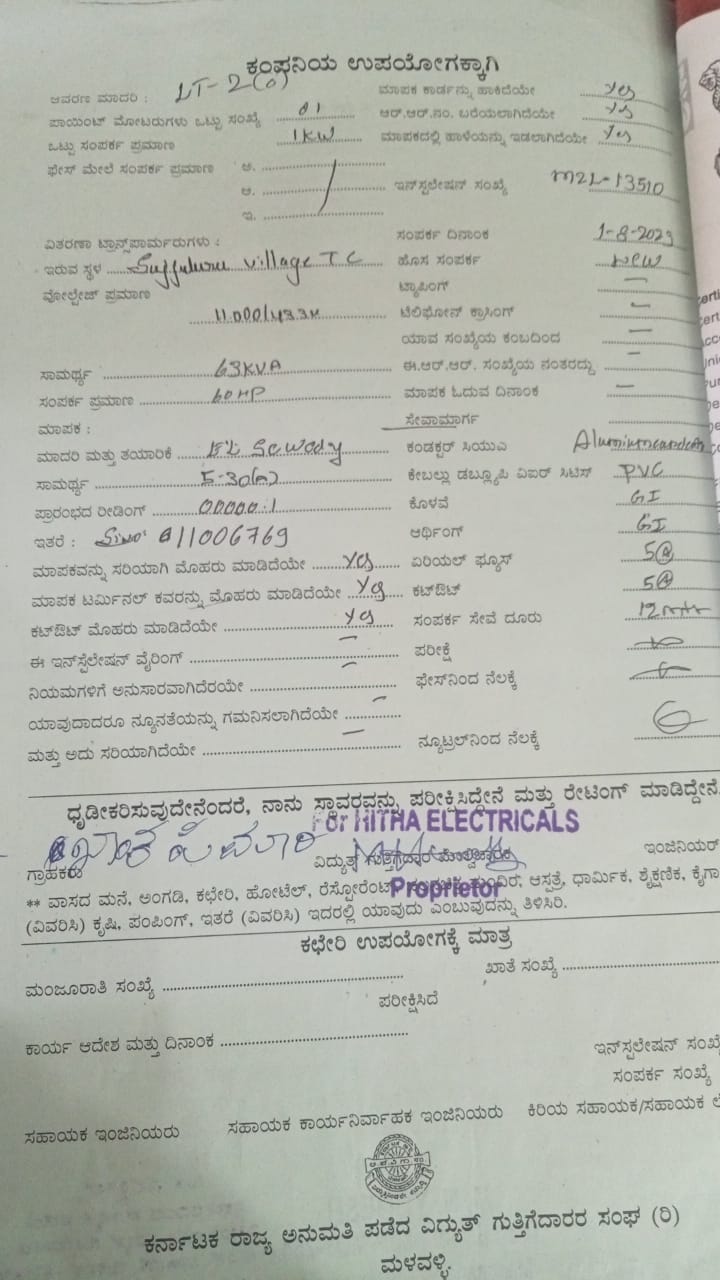 ಕಂಪನಿಯ ಉಪಯೋಗಕ್ಕಾಗಿ
ಆವರಣ ಮಾದರಿ : LT-2(a) ಮಾಪಕ ಕಾರ್ಡನ್ನು ಹಾಕಿದೆಯೇ Yes
ಪಾಯಿಂಟ್ ಮೋಟರುಗಳು ಒಟ್ಟು ಸಂಖ್ಯೆ 01 ಆರ್.ಆರ್.ನಂ. ಬರೆಯಲಾಗಿದೆಯೇ Yes
ಒಟ್ಟು ಸಂಪರ್ಕ ಪ್ರಮಾಣ 1KW ಮಾಪಕದಲ್ಲಿ ಹಾಳೆಯನ್ನು ಇಡಲಾಗಿದೆಯೇ Yes
ಫೇಸ್ ಮೇಲೆ ಸಂಪರ್ಕ ಪ್ರಮಾಣ ಅ.
ಆ. ಇನ್‌ಸ್ಟಲೇಷನ್ ಸಂಖ್ಯೆ M2L-13510
ಇ.
ವಿತರಣಾ ಟ್ರಾನ್ಸ್‌ಪಾರ್ಮರುಗಳು : ಸಂಪರ್ಕ ದಿನಾಂಕ 1-8-2023
ಇರುವ ಸ್ಥಳ village TC ಹೊಸ ಸಂಪರ್ಕ New
ವೋಲ್ಟೇಜ್ ಪ್ರಮಾಣ ಟ್ಯಾಪಿಂಗ್ —
11000/433V ಟೆಲಿಫೋನ್ ಕ್ರಾಸಿಂಗ್ —
ಯಾವ ಸಂಖ್ಯೆಯ ಕಂಬದಿಂದ —
ಸಾಮರ್ಥ್ಯ 63KVA ಈ.ಆರ್.ಆರ್. ಸಂಖ್ಯೆಯ ನಂತರದ್ದು —
ಸಂಪರ್ಕ ಪ್ರಮಾಣ 60HP ಮಾಪಕ ಓದುವ ದಿನಾಂಕ —
ಮಾಪಕ : ಸೇವಾಮಾರ್ಗ
ಮಾದರಿ ಮತ್ತು ತಯಾರಿಕೆ ಕಂಡಕ್ಟರ್ ಸಿಯುಎ
ಸಾಮರ್ಥ್ಯ 5-30(a) ಕೇಬಲ್ಲು ಡಬ್ಲ್ಯೂಪಿ ವಿಐರ್ ಸಿಟಿಸ್ PVC
ಪ್ರಾರಂಭದ ರೀಡಿಂಗ್ 00000.1 ಕೊಳವೆ GI
ಇತರೆ : Slno: 011006769 ಆರ್ಥಿಂಗ್ GI
ಮಾಪಕವನ್ನು ಸರಿಯಾಗಿ ಮೊಹರು ಮಾಡಿದೆಯೇ Yes ಏರಿಯಲ್ ಫ್ಯೂಸ್ 5A
ಮಾಪಕ ಟರ್ಮಿನಲ್ ಕವರನ್ನು ಮೊಹರು ಮಾಡಿದೆಯೇ Yes ಕಟ್‌ಔಟ್ 5A
ಕಟ್‌ಔಟ್ ಮೊಹರು ಮಾಡಿದೆಯೇ Yes ಸಂಪರ್ಕ ಸೇವೆ ದೂರು
ಈ ಇನ್‌ಸ್ಟಲೇಷನ್ ವೈರಿಂಗ್ — ಪರೀಕ್ಷೆ
ನಿಯಮಗಳಿಗೆ ಅನುಸಾರವಾಗಿದೆರಯೇ — ಫೇಸ್‌ನಿಂದ ನೆಲಕ್ಕೆ
ಯಾವುದಾದರೂ ನ್ಯೂನತೆಯನ್ನು ಗಮನಿಸಲಾಗಿದೆಯೇ —
ಮತ್ತು ಅದು ಸರಿಯಾಗಿದೆಯೇ — ನ್ಯೂಟ್ರಲ್‌ನಿಂದ ನೆಲಕ್ಕೆ
ಧೃಡೀಕರಿಸುವುದೇನೆಂದರೆ, ನಾನು ಸ್ಥಾವರವನ್ನು ಪರೀಕ್ಷಿಸಿದ್ದೇನೆ ಮತ್ತು ರೇಟಿಂಗ್ ಮಾಡಿದ್ದೇನೆ.
For HITHA ELECTRICALS
ಗ್ರಾಹಕರು ವಿದ್ಯುತ್ ಗುತ್ತಿಗೆದಾರ ಇಂಜಿನಿಯರ್
Proprietor
** ವಾಸದ ಮನೆ, ಅಂಗಡಿ, ಕಛೇರಿ, ಹೋಟೆಲ್, ರೆಸ್ಟೋರೆಂಟ್, ಆಸ್ಪತ್ರೆ, ಧಾರ್ಮಿಕ, ಶೈಕ್ಷಣಿಕ, ಕೈಗಾ
(ವಿವರಿಸಿ) ಕೃಷಿ, ಪಂಪಿಂಗ್, ಇತರೆ (ವಿವರಿಸಿ) ಇದರಲ್ಲಿ ಯಾವುದು ಎಂಬುವುದನ್ನು ತಿಳಿಸಿರಿ.
ಕಛೇರಿ ಉಪಯೋಗಕ್ಕೆ ಮಾತ್ರ
ಮಂಜೂರಾತಿ ಸಂಖ್ಯೆ ಖಾತೆ ಸಂಖ್ಯೆ
ಪರೀಕ್ಷಿಸಿದೆ
ಕಾರ್ಯ ಆದೇಶ ಮತ್ತು ದಿನಾಂಕ
ಇನ್‌ಸ್ಟಲೇಷನ್ ಸಂಖ್ಯೆ
ಸಂಪರ್ಕ ಸಂಖ್ಯೆ
ಸಹಾಯಕ ಇಂಜಿನಿಯರು ಸಹಾಯಕ ಕಾರ್ಯನಿರ್ವಾಹಕ ಇಂಜಿನಿಯರು ಕಿರಿಯ ಸಹಾಯಕ/ಸಹಾಯಕ
ಕರ್ನಾಟಕ ರಾಜ್ಯ ಅನುಮತಿ ಪಡೆದ ವಿದ್ಯುತ್ ಗುತ್ತಿಗೆದಾರರ ಸಂಘ (ರಿ)
ಮಳವಳ್ಳಿ.